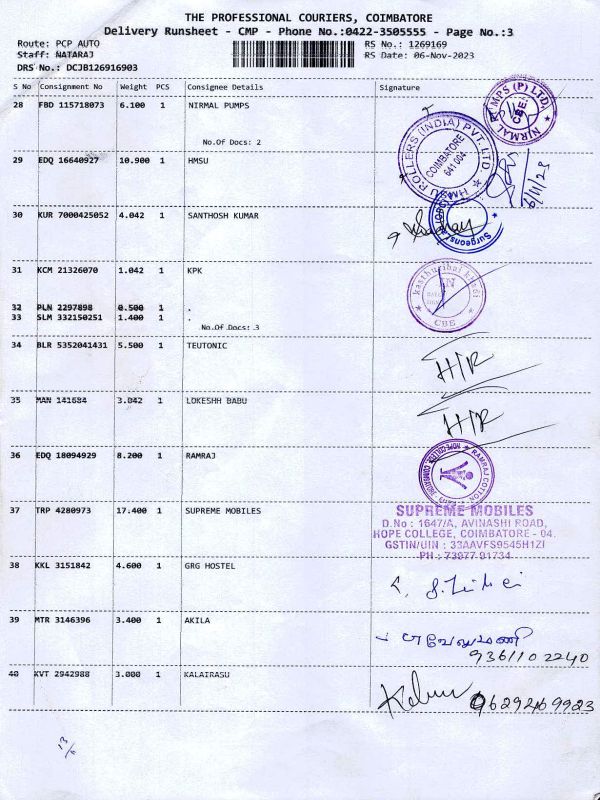 THE PROFESSIONAL COURIERS, COIMBATORE
Delivery Runsheet - CMP - Phone No.:0422-3505555 - Page No.:3
Route: PCP AUTO RS No.: 1269169
Staff: NATARAJ RS Date: 06-Nov-2023
DRS No.: DCJB126916903
S No Consignment No Weight PCS Consignee Details Signature
28 FBD 115718073 6.100 1 NIRMAL PUMPS
NIRMAL PUMPS (P) LTD. CBE.
No.Of Docs: 2
29 EDQ 16640927 10.900 1 HMSU
HMSU ROLLERS (INDIA) PVT. LTD. COIMBATORE 641 004
6/11/23
30 KUR 7000425052 4.042 1 SANTHOSH KUMAR
31 KCM 21326070 1.042 1 KPK
CBE
32 PLN 2297898 0.500 1 .
33 SLM 332150251 1.400 1 .
No.Of Docs: 3
34 BLR 5352041431 5.500 1 TEUTONIC
H/R
35 MAN 141684 3.042 1 LOKESHH BABU
H/R
36 EDQ 18094929 8.200 1 RAMRAJ
RAMRAJ COTTON
37 TRP 4280973 17.400 1 SUPREME MOBILES
SUPREME MOBILES
D.No : 1647/A, AVINASHI ROAD,
HOPE COLLEGE, COIMBATORE - 04.
GSTIN/UIN : 33AAVFS9545H1ZI
PH : 73977 91734
38 KKL 3151842 4.600 1 GRG HOSTEL
39 MTR 3146396 3.400 1 AKILA
வேலுமணி
9361102240
40 KVT 2942988 3.000 1 KALAIRASU
9629269923